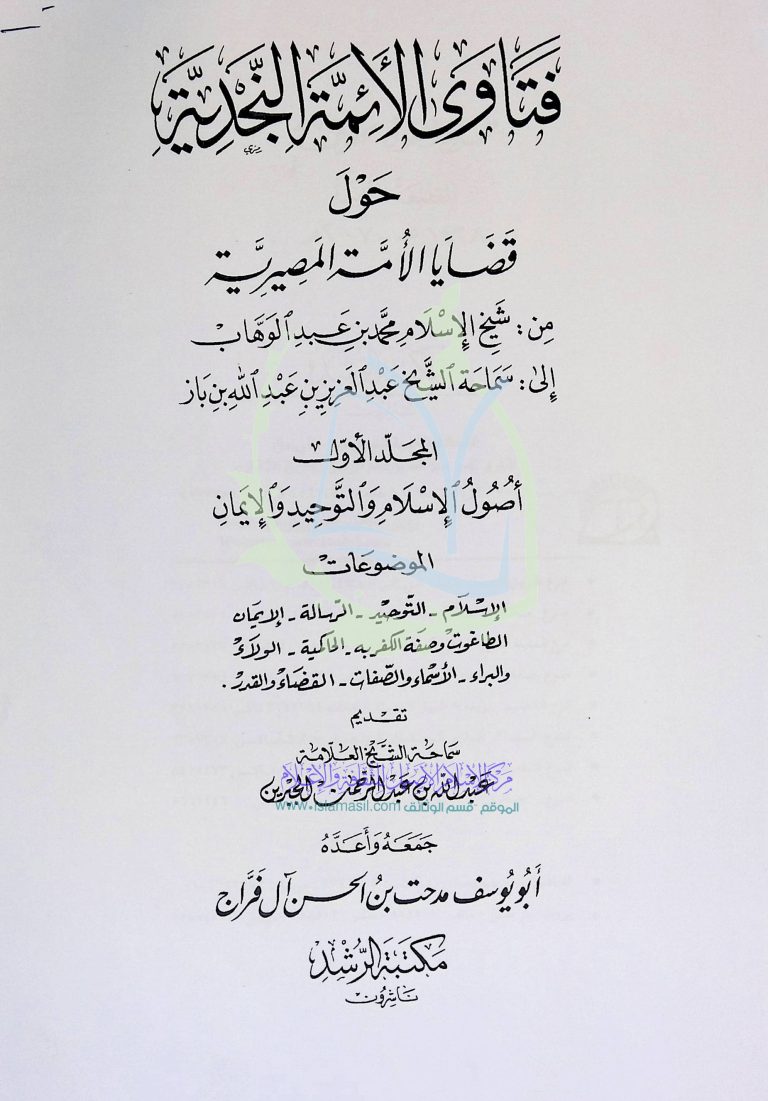 فَتَاوَى الأَئِمَّة النَّجْدِيَّة
حَوْلَ
قَضَايَا الأُمَّة المَصِيرِيَّة
مِن: شَيْخِ الإِسْلَامِ مُحَمَّد بْنِ عَبْدِ الوَهَّاب
إِلى: سَمَاحَة الشَّيْخ عَبْدِ العَزِيزِ بْنِ عَبْدِ اللهِ بْنِ بَاز
المجلّد الأوّل
أُصُولُ الإِسْلَامِ وَالتَّوْحِيدِ وَالإِيمَانِ
الموضوعات
الإسلام - التوحيد - الرسالة - الإيمان
الطاغوت وصفة الكفر به - الحاكمية - الولاء
والبراء - الأسماء والصفات - القضاء والقدر .
تقديم
سماحة الشيخ العلّامة
عبد الله بن عبد الرحمن الجبرين
الموقع قسم الوثائق www.islamasil.com
جَمَعَهُ وَأَعَدَّهُ
أَبُو يُوسف مدحت بنُ الحسن آل فَرَّاج
مَكتَبَة الرُّشْدِ
نَاشِرُون